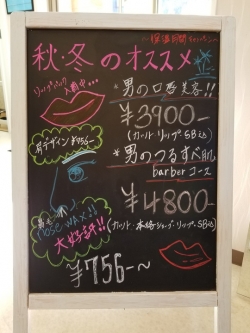 秋・冬のオススメ
リップパック
入荷中…
*男の口唇美容!!
¥3900-
(カット リップ SB込)
爪デザイン¥756~
*男のつるすべ肌
barberコース
¥4800
(カット・本格シェーブ・リップ・SB込)
鼻毛
nose wax
大好評!!
¥756-~